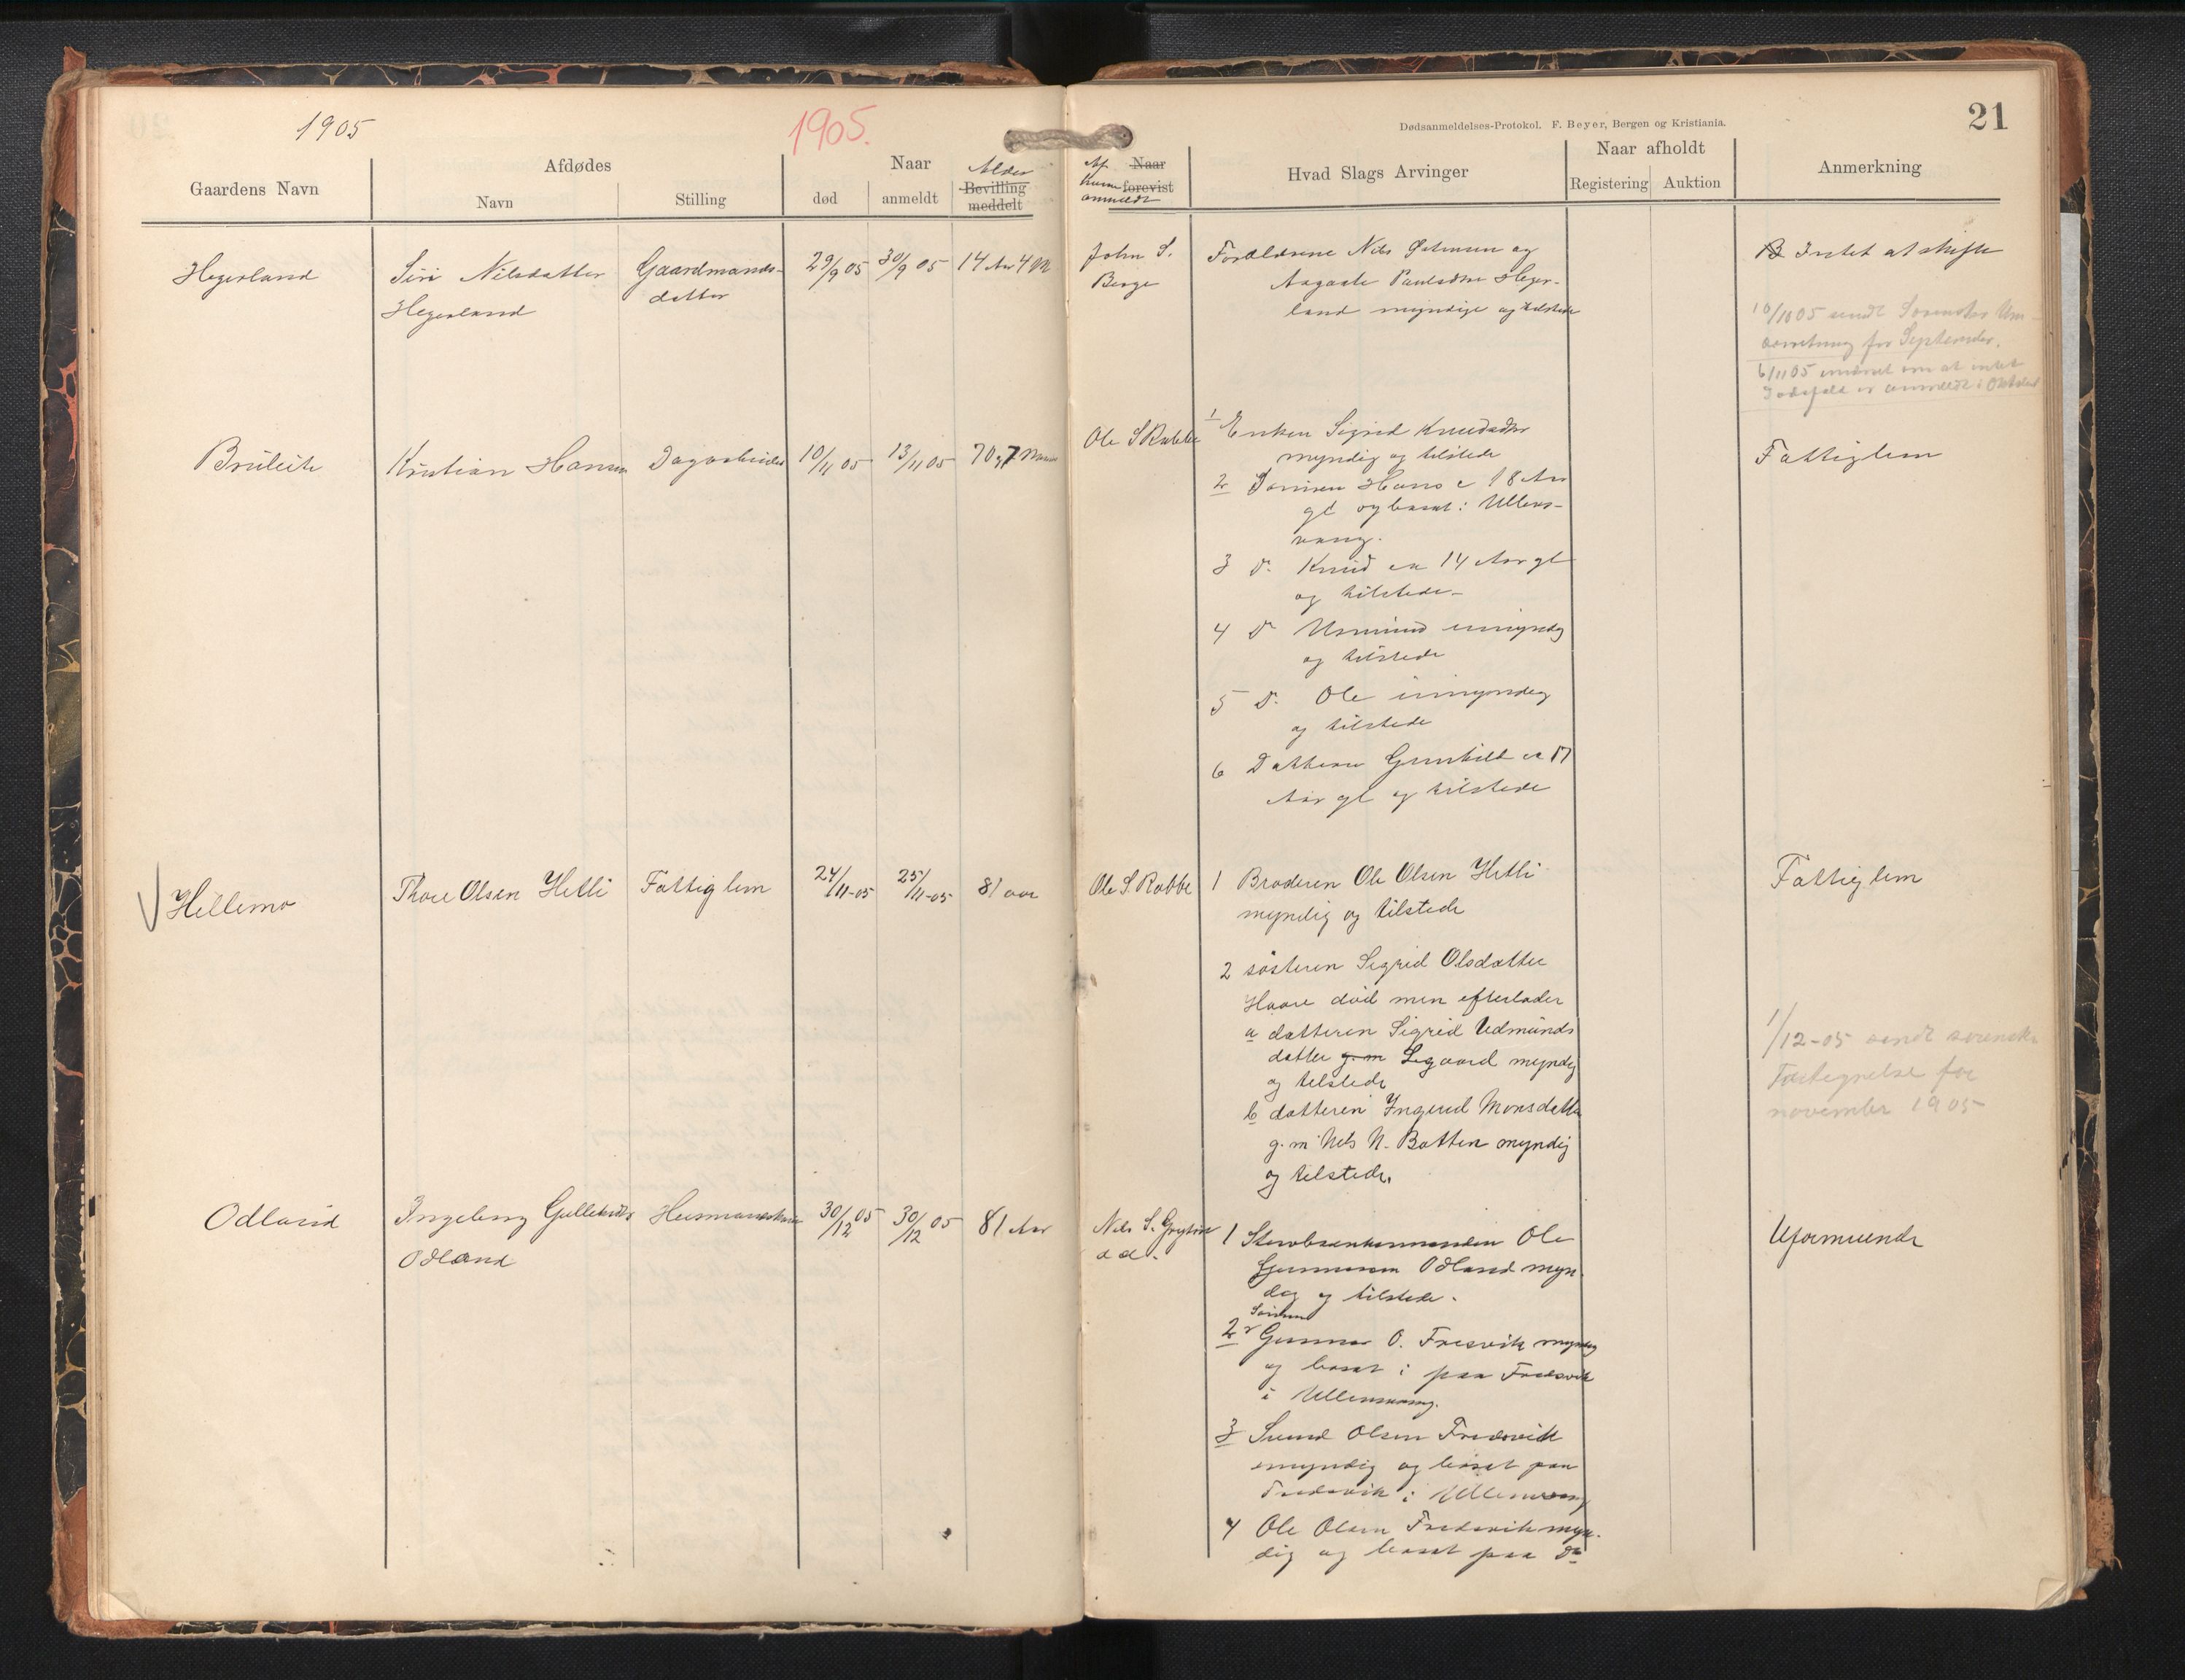 1905
1905.
Dødsanmeldelses-Protokol. F. Beyer, Bergen og Kristiania.
21
Gaardens Navn
Afdødes
Navn
Stilling
Naar
død
anmeldt
Alder
Bevilling
meddelt
Af
hvem
anmeldt
Naar
forevist
Hvad Slags Arvinger
Naar afholdt
Registering
Auktion
Anmerkning
Hegerland
Siri Nilsdatter
Hegerland
Gaardmands-
datter
29/9 05
30/9 05
14 Aar 4 M
John S.
Berge
Forældrene Nils og
Aagaate Paulsdtr Heger-
land myndige og tilstede
Intet at skifte
10/11 05 sendt Sorenskr Un-
derretning for September.
6/11 05 meldt om at intet
Dødsfald er anmeldt i Oktober
Bruleite
Kristian Hansen
Dagarbeider
10/11 05
13/11 05
70 7 Maaneder
Ole S Rabbe
1 Enken Sigrid Knudsdtr
myndig og tilstede
2 Sønnen Hans c 18 Aar
gl og bosat i Ullens-
vang.
3 Do Knud ca 14 Aar gl
og tilstede
4 Do umyndig
og tilstede
5 Do Ole umyndig
og tilstede
6 Datteren Gunhild ca 17
Aar gl og tilstede
Fattiglem
Hillemo
Thore Olsen Hetli
Fattiglem
24/11-05
25/11-05
81 aar
Ole S. Rabbe
1 Broderen Ole Olsen Hetli
myndig og tilstede
2 søsteren Sigrid Olsdatter
Haare død men efterlader
a datteren Sigrid Udmunds
datter g. m Legaard myndig
og tilstede
b datteren Ingerid Monsdatter
g. m Nels N. Botten myndig
og tilstede.
Fattiglem
1/12-05 sendt sorenskr
Fortegnelse for
november 1905
Odland
Ingeborg Gulleiksdtr
Odland
Husmandskone
30/12 05
30/12 05
81 Aar
Nils S.
1 Ole
Gunnarsen Odland myn-
dig og tilstede.
Sønnen
2 Gunnar O. Fresvik myndig
og bosat i paa Fresvik
i Ullensvang.
3 Svend Olsen Fredsvik
myndig og bosat paa
Fredsvik i Ullensvang
4 Ole Olsen Fredsvik myn-
dig og bosat paa Do
Uformuende